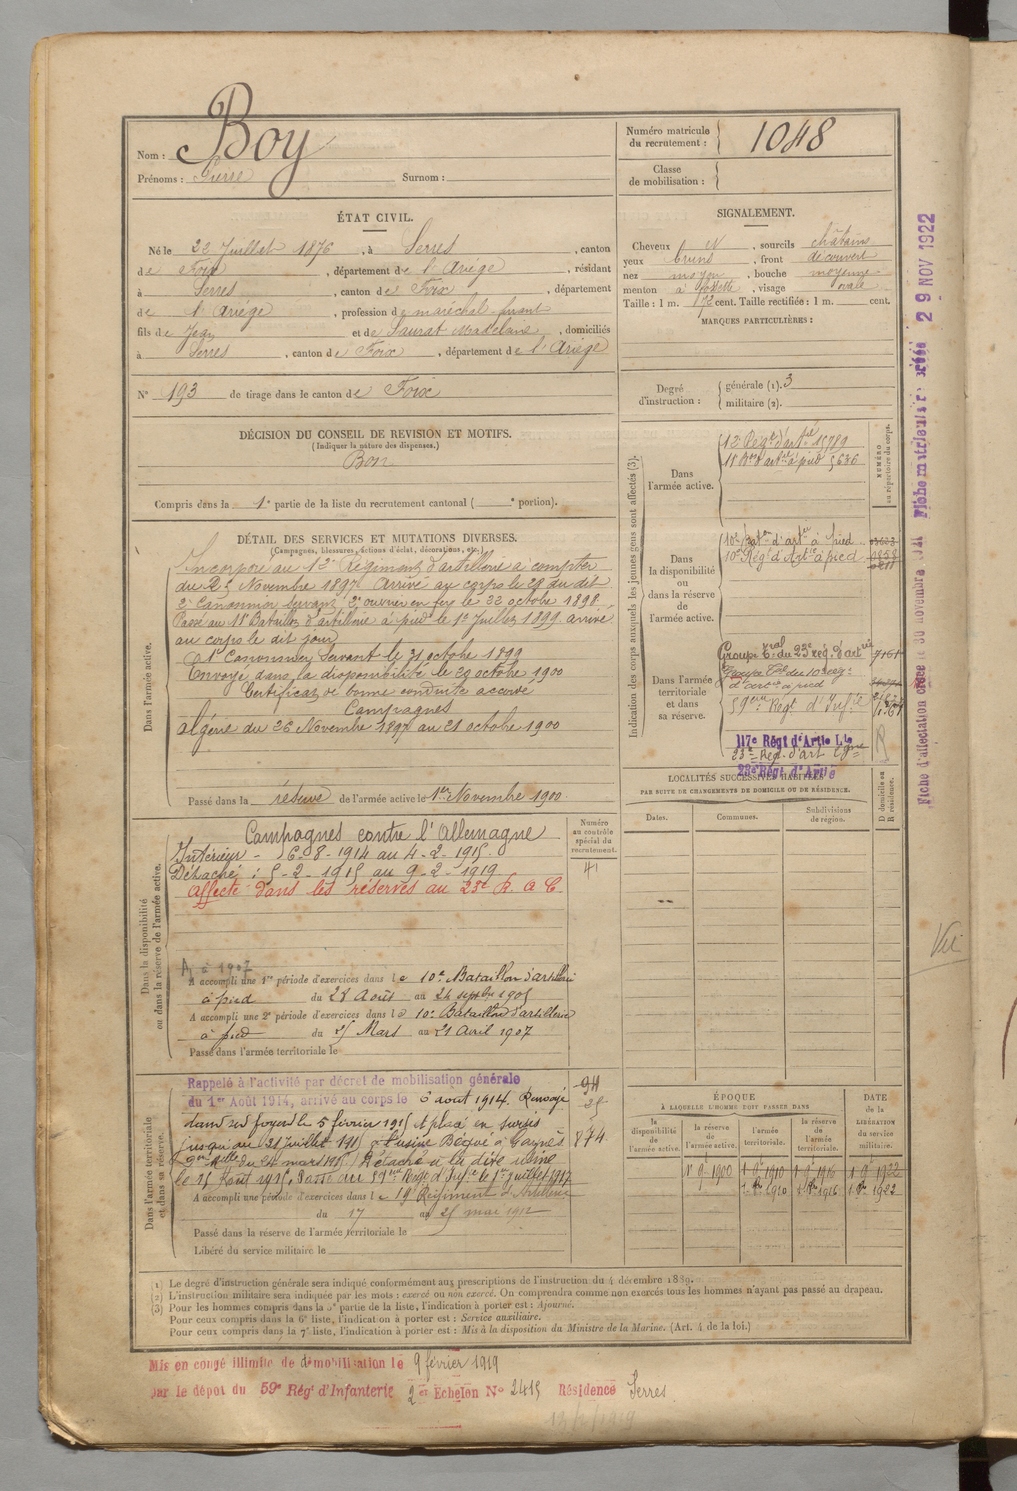 Nom : Boy
Prénoms : Pierre Surnom :
Numéro matricule du recrutement : 1048
Classe de mobilisation :
ÉTAT CIVIL.
Né le 22 Juillet 1876, à Serres, canton
de Foix, département de l'Ariége, résidant
à Serres, canton de Foix, département
de l'Ariége, profession de maréchal ferrant
fils de Jean et de Saurat Madelaine, domiciliés
à Serres, canton de Foix, département de l'Ariége
N° 193 de tirage dans le canton de Foix
SIGNALEMENT.
Cheveux N, sourcils châtains
yeux bruns, front découvert
nez moyen, bouche moyenne
menton à fossette, visage ovale
Taille : 1 m. 72 cent. Taille rectifiée : 1 m. cent.
MARQUES PARTICULIÈRES :
Degré d'instruction : générale (1). 3
militaire (2).
DÉCISION DU CONSEIL DE REVISION ET MOTIFS.
(Indiquer la nature des dispenses.)
Bon
Compris dans la 1e partie de la liste du recrutement cantonal ( e portion).
DÉTAIL DES SERVICES ET MUTATIONS DIVERSES.
(Campagnes, blessures, actions d'éclat, décorations, etc.)
Dans l'armée active.
Incorporé au 12e Régiment d'artillerie à compter
du Novembre 1897. Arrivé au corps le 28 du dit
2e Canonnier Servant 2e ouvrier en fer le 22 octobre 1898.
Passé au 15e Bataillon d'artillerie à pied le 1er Juillet 1899 arrivé
au corps le dit jour
1er Canonnier Servant le 31 octobre 1899
Envoyé dans la disponibilité le 29 octobre 1900
Certificat de bonne conduite accordé
Campagnes
Algérie du 26 Novembre 1897 au 21 octobre 1900
Passé dans la réserve de l'armée active le 1er Novembre 1900
Indication des corps auxquels les jeunes gens sont affectés (3).
NUMÉRO au répertoire du corps.
Dans l'armée active.
12 Régt d'artie 15789
15 Bon d'artie à pied 5636
Dans la disponibilité ou dans la réserve de l'armée active.
10e Baton d'artie à pied
10e Régt d'Artie à pied
Dans l'armée territoriale et dans sa réserve.
Groupe Trial du 23e rég. d'artie
Groupe Tal du 10e rég.
d'artie à pied
59eme Régt d'Infie
117e Régt d'Artie Lde
23e Rég. d'art Cgne
23e Régt d'Artie
R
LOCALITÉS SUCCESSIVES HABITÉES
PAR SUITE DE CHANGEMENTS DE DOMICILE OU DE RÉSIDENCE.
D domicile ou R résidence.
Dates. Communes. Subdivisions de région.
Dans la disponibilité ou dans la réserve de l'armée active.
Numéro au contrôle spécial du recrutement.
41
Campagnes contre l'Allemagne
Intérieur - 6-8-1914 au 4-2-1915
Détaché : 5-2-1915 au 9-2-1919
Affecté dans les réserves au 23e R A C
A à 1907
A accompli une 1re période d'exercices dans le 10e Bataillon d'artillerie
à pied du 28 Août au 24 septbre 1905
A accompli une 2e période d'exercices dans le 10e Bataillon d'artillerie
à pied du Mars au 21 Avril 1907
Passé dans l'armée territoriale le
Dans l'armée territoriale et dans sa réserve.
Rappelé à l'activité par décret de mobilisation générale
du 1er Août 1914, arrivé au corps le 6 août 1914. Renvoyé
dans ses foyers le 5 février 1915 et placé en sursis
jusqu'au 31 juillet 1915
du 24 mars 1915. Détaché à la dite usine
le 15 Août 1915. Passé au 59eme Régt d'Infie le 1er juillet 1917
874
A accompli une période d'exercices dans le Régiment d'Artillerie
du 17 au 25 mai 1912
Passé dans la réserve de l'armée territoriale le
Libéré du service militaire le
ÉPOQUE
À LAQUELLE L'HOMME DOIT PASSER DANS
DATE de la LIBÉRATION du service militaire.
la disponibilité de l'armée active. la réserve de l'armée active. l'armée territoriale. la réserve de l'armée territoriale.
1er 9e 1900 1 9e 1910 1 9e 1916 1 9e 1922
1 8bre 1910 1 8bre 1916 1 8bre 1922
(1) Le degré d'instruction générale sera indiqué conformément aux prescriptions de l'instruction du 4 décembre 1889.
(2) L'instruction militaire sera indiquée par les mots : exercé ou non exercé. On comprendra comme non exercés tous les hommes n'ayant pas passé au drapeau.
(3) Pour les hommes compris dans la 5e partie de la liste, l'indication à porter est : Ajourné.
Pour ceux compris dans la 6e liste, l'indication à porter est : Service auxiliaire.
Pour ceux compris dans la 7e liste, l'indication à porter est : Mis à la disposition du Ministre de la Marine. (Art. 4 de la loi.)
Mis en congé illimité de démobilisation le 9 février 1919
par le dépôt du 59e Régt d'Infanterie 2 et Echelon N° 2415 Résidence Serres
Fiche d'affectation créée le 30 novembre Fiche matriculaire créée 29 NOV 1922
Vu